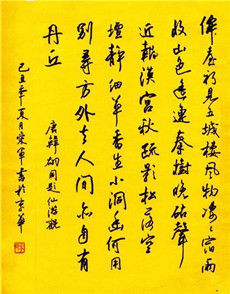 僊臺初見五城樓風物凄凄宿雨
收山色遥連秦樹晚砧聲
近報漢宮秋疏影松落空
壇靜細草香生小洞幽何用
別尋方外去人間亦自有
丹丘
唐韓翃同題仙游觀
己丑年夏月榮軍書於京華